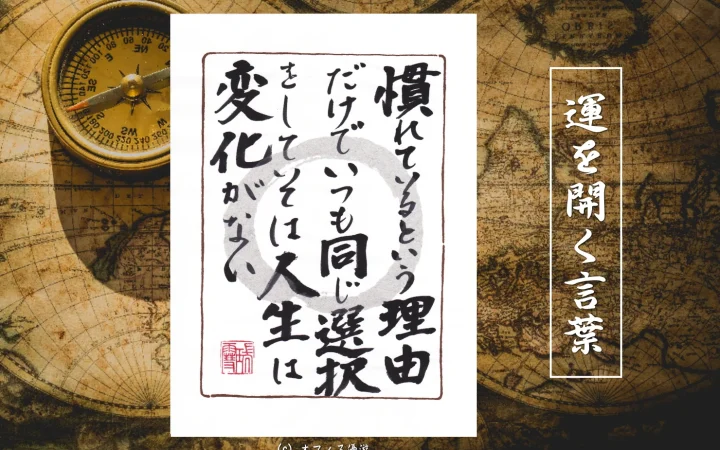 運を開く言葉
慣れているという理由
だけでいつも同じ選択
をしていては人生は
変化がない